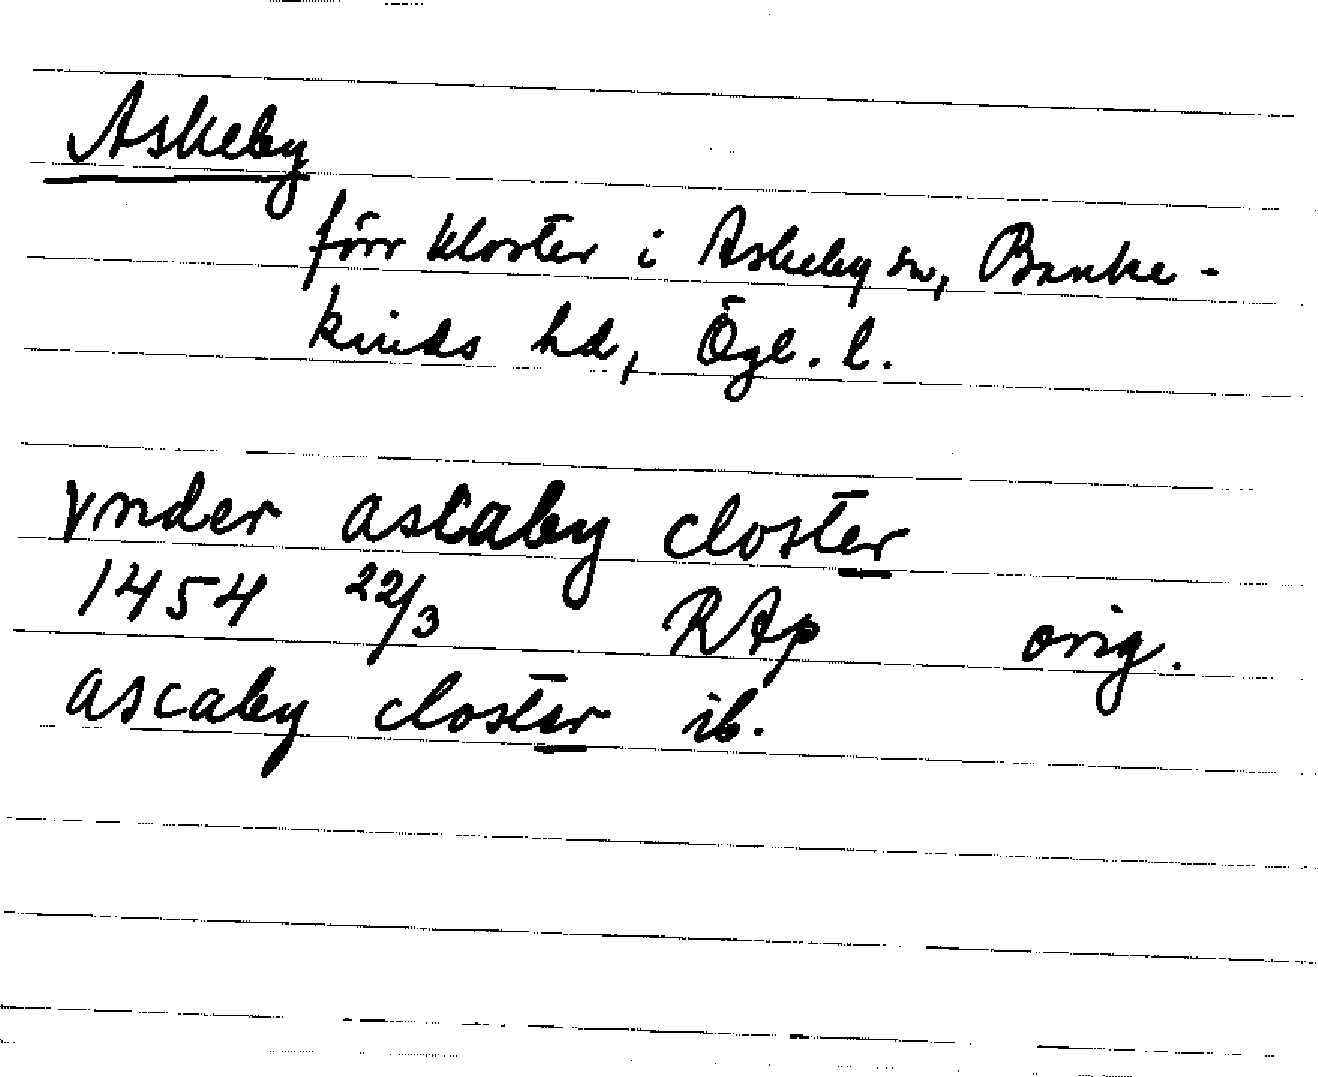 Askeby
förr kloster i Askeby sn, Banke-
kinds hd, Ögl. l.
ynder ascaby closter
1454 22/3 RAp orig.
ascaby closter ib.